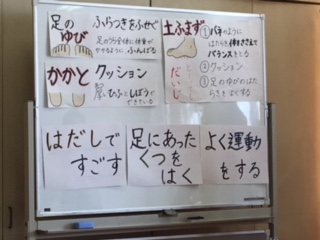 足の
ゆび
ふらつきをふせぐ
足のうら全体に体重が
かかるように、ふんばる
かかと
クッション
厚いひふとしぼうで
できている
土ふまず
だいじ
① バネのように
はたらき、体をささえて
バランスをとる
② クッション
③ 足のゆびのはた
らきをよくする
はだしで
すごす
足にあった
くつを
はく
よく運動
をする